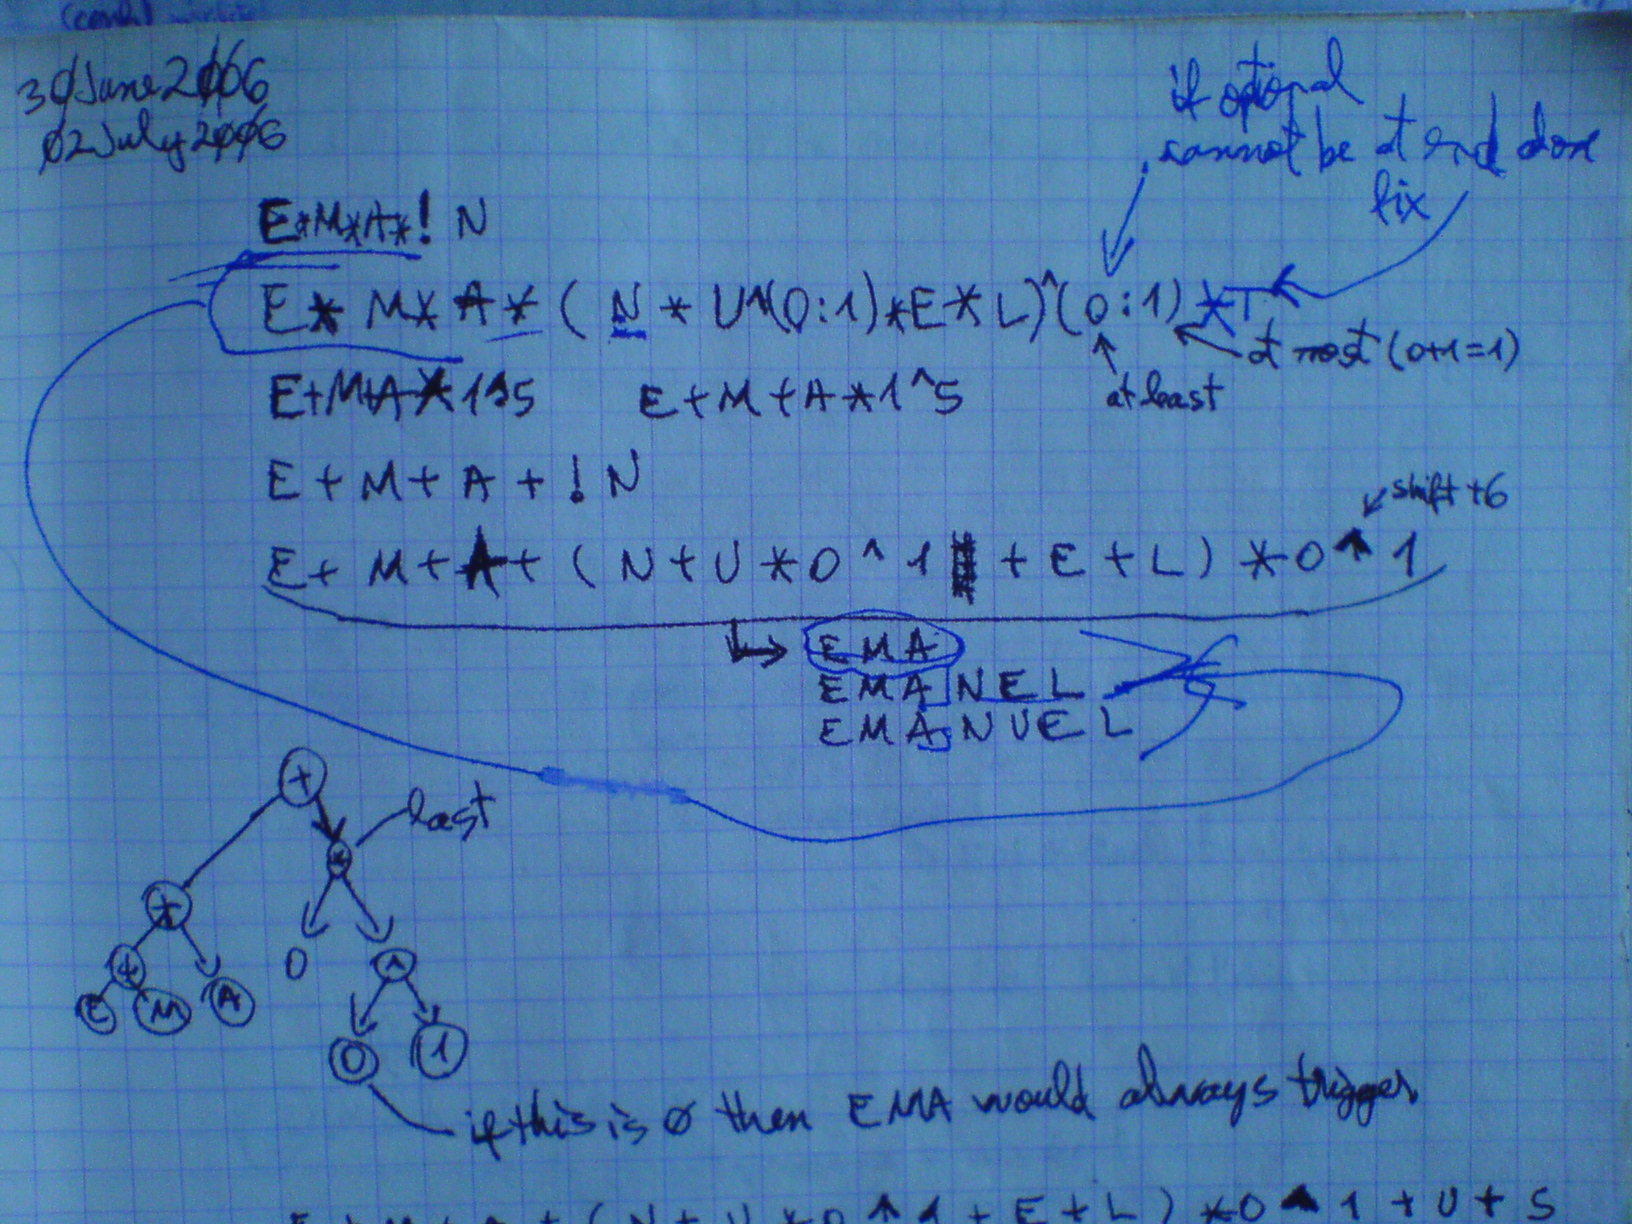 30June2006
02July2006
if optional
cannot be at end alone
fix
E*M*A*! N
E* M* A * ( N * U^(0:1)*E*L)^(0:1) *T
at most (0+1=1)
at least
E+M+A*1^5 E+M+A*1^5
E + M + A + ! N
shift+6
E + M + A + ( N + U * 0 ^ 1 + E + L ) * 0 ^ 1
EMA
EMANEL
EMANUEL
+
last
*
+
+ A 0 ^
E M
0 1
if this is 0 then EMA would always trigger
E + M + A + ( N + U * 0 ^ 1 + E + L ) * 0 ^ 1 + U + S